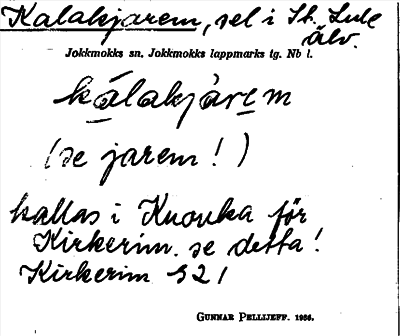 Kalakjarem, sel i St. Lule
älv.
Jokkmokks sn. Jokkmokks lappmarks tg. Nb l.
kálakjàrem
(se jarem!)
kallas i Knouka för
Kirkerim. se detta!
Kirkerim 321
GUNNAR PELLIJEFF. 1956.